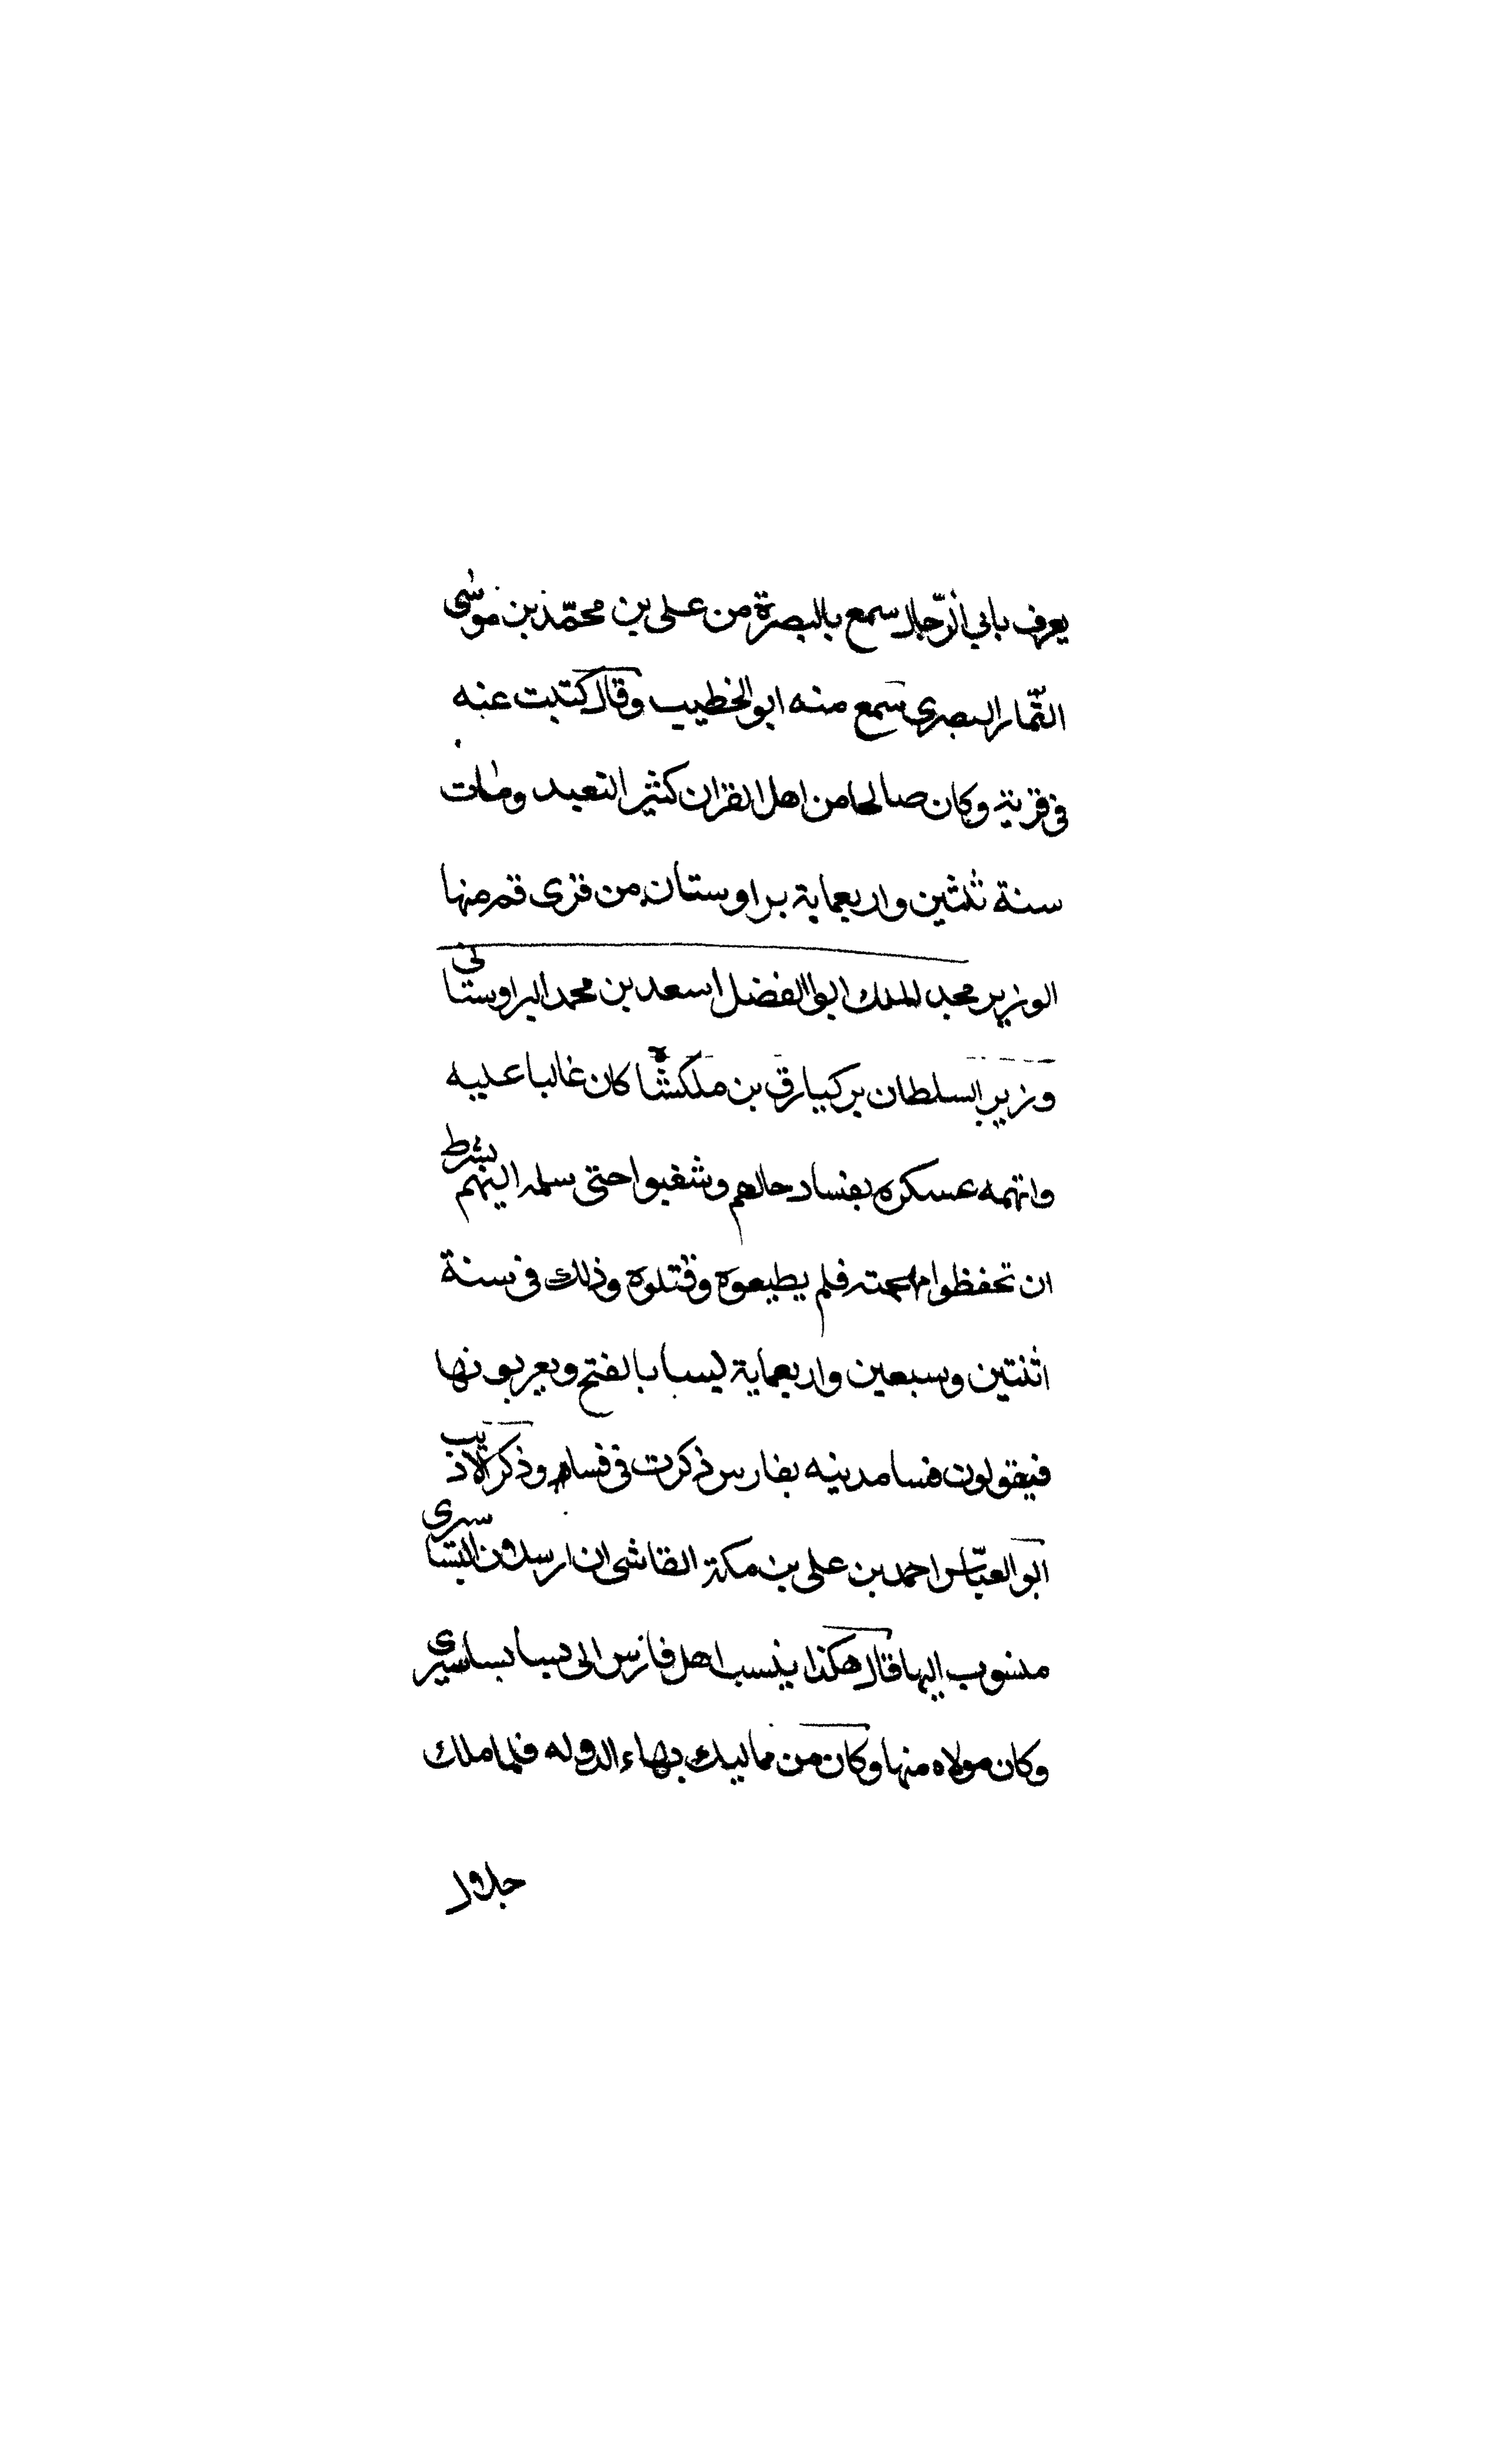 يعرف بابي الرّجال سمع بالبصرة من على بن محمّد بن موسى
التمّار البصري سمع منه ابو الخطيب وقال كتبت عنه
فى قرية وكان صالحا من اهل القران كثير التعبد ومات
سنة ثلثين واربعماية براوستان من قرى قم منها
الوزير مجد الملك ابو الفضل اسعد بن محمد البراوستانى
وزير السلطان بركيارق بن ملكشاه كان غالبا عليه
واتهمه عسكره بفساد حالهم وشغبوا حتى سلمه اليهم بشرط
ان تحفظوا مهجته فلم يطيعوه وقتلوه وذلك فى سنة
اثنتين وسبعين واربعماية بسا بالفتح ويعربونها
فيقولون فسا مدينه بفارس ذكرت فى فسا وذكر الاديب
ابو العبّاس احمد بن على بن مكة القاشى ان ارسلان البساسرى
منسوب اليها قال هكذا ينسب اهل فارس الى بسا بساسيرى
وكان مولاه منها وكان من مماليك بهاء الدوله فلما ملك
جلال